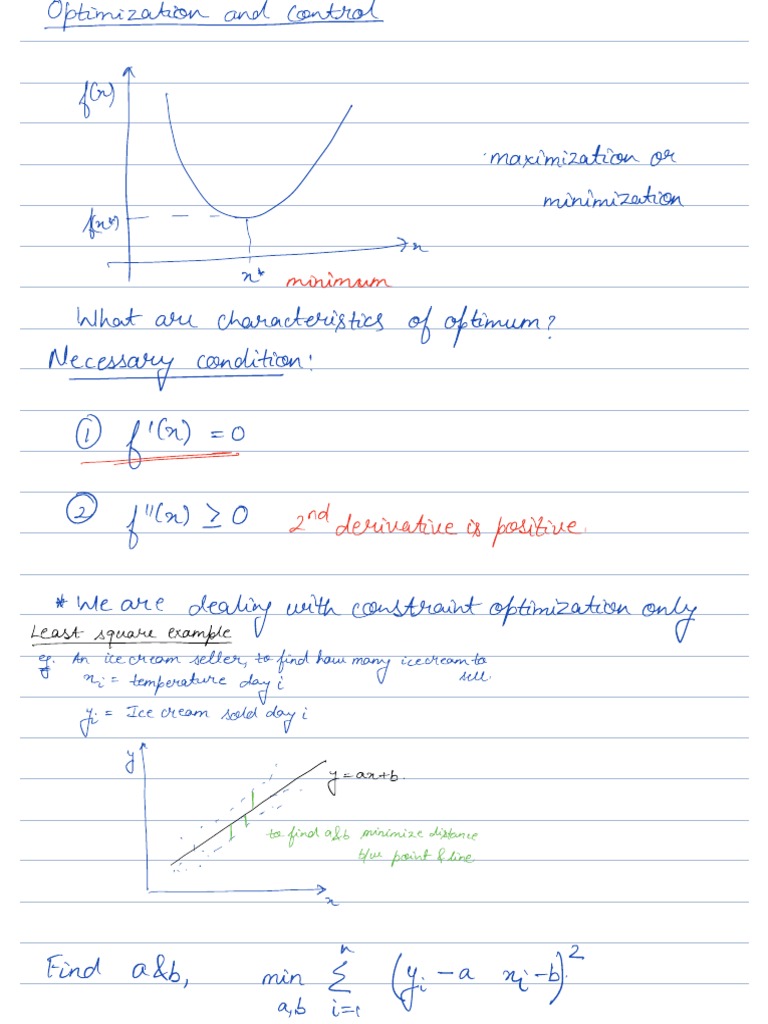 Optimization and control
f(x)
maximization or
minimization
f(x*)
x
x* minimum
What are characteristics of optimum?
Necessary condition:
① f'(x) = 0
② f''(x) ≥ 0 2nd derivative is positive.
* We are dealing with constraint optimization only
Least square example
eg. An ice cream seller, to find how many icecream to
sell.
xi = temperature day i
yi = Ice cream sold day i
y
y = ax+b.
to find a&b minimize distance
b/w point & line
x
Find a&b, min a,b n Σ i=1 (yi - a xi - b)²